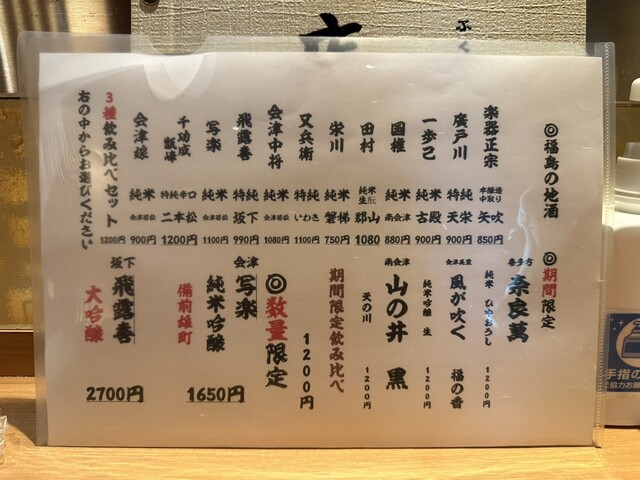 ◎福島の地酒
楽器正宗 本醸造り 中取り 矢吹 850円
廣戸川 特純 天栄 900円
一歩己 純米 古殿 900円
国権 純米 南会津 880円
田村 純米 生酛 郡山 1080
栄川 特純 磐梯 750円
又兵衛 特純 いわき 1100円
会津中将 純米 会津若松 1080円
飛露喜 特純 坂下 990円
写楽 純米 会津若松 1100円
千功成 飯峰 特純辛口 二本松 1200円
会津娘 純米 会津若松 900円
3種飲み比べセット 1200円
右の中からお選びください
◎期間限定
喜多方
奈良萬
純米 ひやおろし 1200円
会津美里
風が吹く 福の香
純米吟醸 生 1200円
南会津
山の井 黒
天の川 1200円
期間限定飲み比べ
1200円
◎数量限定
会津
写楽
純米吟醸
備前雄町
1650円
坂下
飛露喜
大吟醸
2700円
手指の